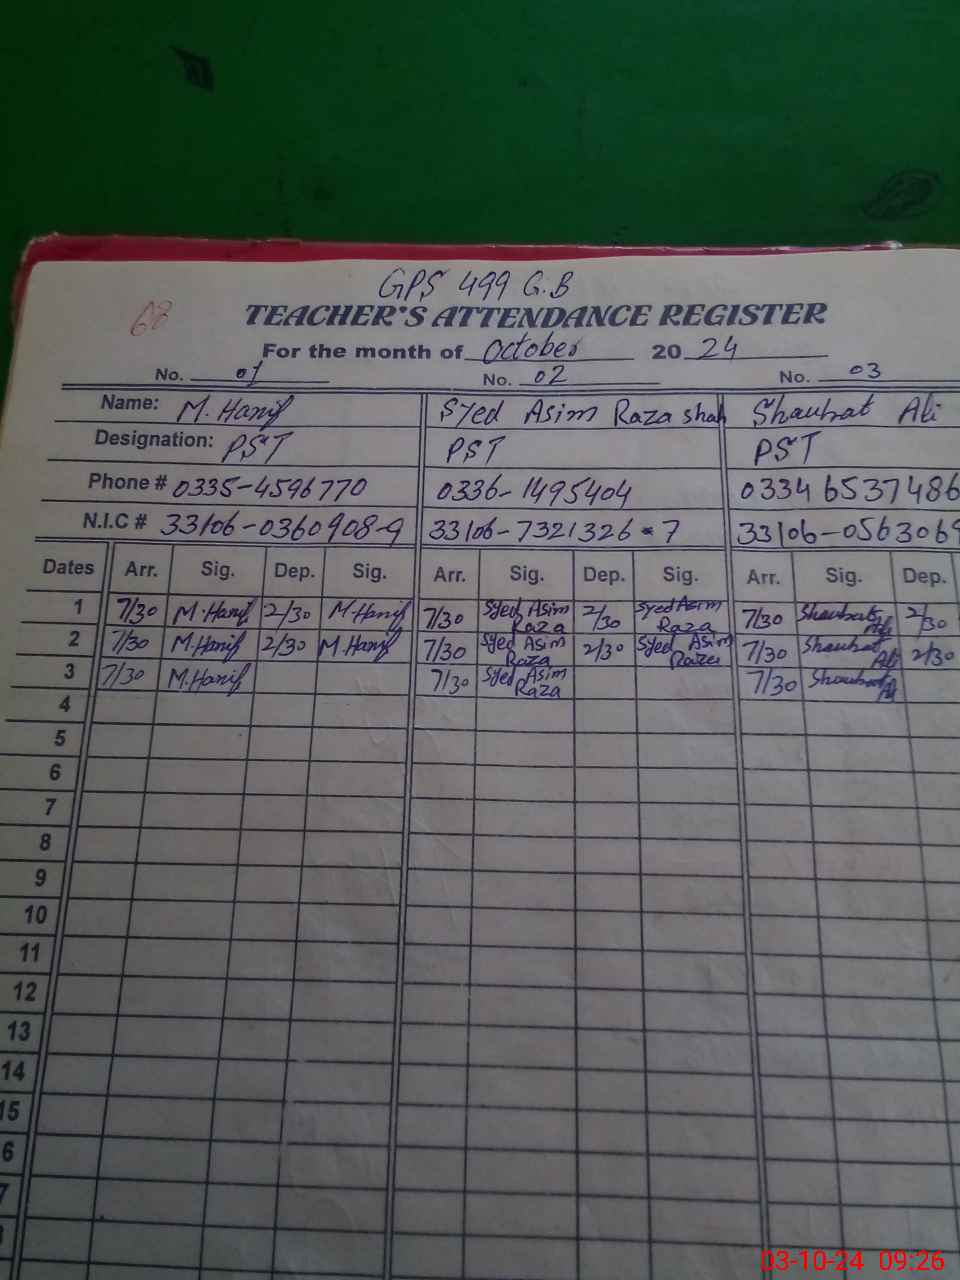 GPS 499 G.B
68
TEACHER'S ATTENDANCE REGISTER
For the month of October 2024
No. 01 No. 02 No. 03
Name: M. Hanif Syed Asim Raza shah Shaukat Ali
Designation: PST PST PST
Phone # 0335-4596770 0336-1495404 03346537486
N.I.C # 33106-0360908-9 33106-7321326-7 33106-0563069
Dates Arr. Sig. Dep. Sig. Arr. Sig. Dep. Sig. Arr. Sig. Dep.
1 7/30 M.Hanif 2/30 M.Hanif 7/30 Syed Asim Raza 2/30 Syed Asim Raza 7/30 Shaukat Ali 2/30
2 7/30 M.Hanif 2/30 M.Hanif 7/30 Syed Asim Raza 2/30 Syed Asim Raza 7/30 Shaukat Ali 2/30
3 7/30 M.Hanif 7/30 Syed Asim Raza 7/30 Shaukat Ali
4
5
6
7
8
9
10
11
12
13
14
15
6
7
03-10-24 09:26